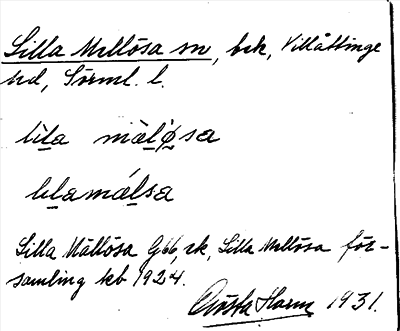 Lilla Mellösa sn, bek, Villåttinge
hd, Sörml. l.
lila mäløsa
lılamälsa
Lilla Mällösa Gbb, ek, Lilla Mellösa för-
samling kb 1924.
Gösta Harm 1931.